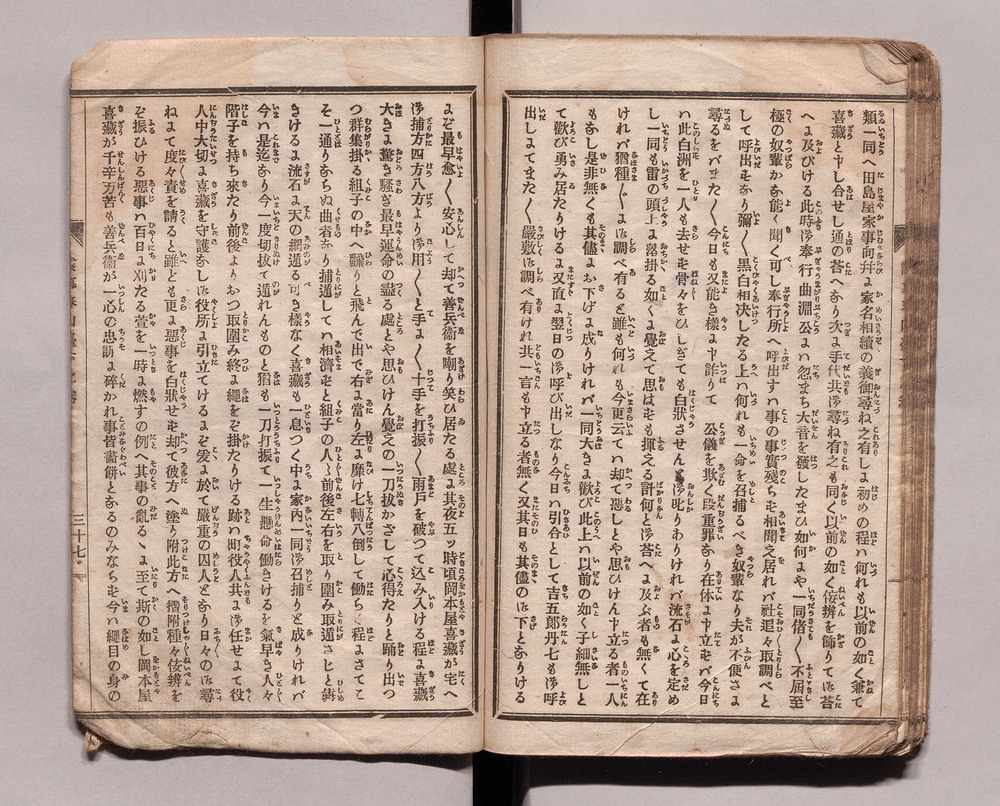 類一同へ田島屋家事向并よ家名相續の義御尋ね之有しよ初めの程ハ何れも以前の如く兼て
喜藏と中し合せし通の荅へあり次よ手代共御尋ね有之も同く以前の如く佞辨を飾りて御荅
へよ及びける此時御奉行曲淵公よハ忽まち大音を發したまひ如何よや一同偖〳〵不届至
極の奴輩かあ能く聞く可し奉行所へ呼出すハ事の事實殘らむ相聞え居れバ社追々取調べと
して呼出をあり彌〳〵黒白相決したる上ハ何れも一命を召捕るべき奴輩なり夫が不便さよ
尋るをバまた〳〵今日も又能き樣よ中許りて公儀を欺く段重罪あり在体よ中立をバ今日
ハ此白洲を一人も去せむ骨々をひしぎても白狀させんと御叱りありけれバ流石よ心を定め
し一同も雷の頭上よ落掛る如くよ覺えて思はむも揮える計何と御荅へよ及ぶ者も無くて在
けれバ猶種〳〵よ御調べ有ると雖も何れも今更云てハ却て惡しとや思ひけん中立る者一人
もあし是非無くも其儘よお下げよ成りけれバ一同大きよ歡び此上ハ以前の如く子細無しと
て歡び勇み居たりけるよ又直よ翌日の御呼び出しなり今日ハ引合として吉五郎丹七も御呼
出しよてまた〳〵嚴敷御調べ有けれ共一言も中立る者無く又其日も其儘の御下とありける
よぞ最早愈〳〵安心して却て善兵衞を嘲り笑ひ居たる處よ其夜五ッ時頃岡本屋喜藏が宅へ
御捕方四方八方より御用〳〵と手よ〳〵十手を打振〳〵雨戶を破つて込み入ける程よ喜藏
大きよ驚き騒ぎ最早運命の盡る處とや思ひけん覺えの一刀拔かざして心得たりと踊り出つ
つ群集掛る組子の中へ飜りと飛んで出で右よ當り左よ靡け七轉八倒して働ら〻程よさてこ
そ一通りあらぬ曲者あり捕逃して ハ相濟むと組子の人〳〵前後左右を取り圍み取逃さじと蒋
きけるよ流石よ天の網遁る可き樣なく喜藏も一息つく中よ家內一同御召捕りと成りけれバ
今ハ是迄あり今一度切拔て通れんものと猶も一刀打振て一生懸命働きけるを氣早き人々
階子を持ち來たり前後よりおつ取圍み終よ繩をぞ掛たりける跡ハ町役人共よ御任せよて役
人中大切よ喜藏を守護あし御役所よ引立てけるよぞ爰よ於て嚴重の囚人とあり日々の御尋
ねよて度々責を請ると雖ども更よ惡事を白狀せむ却て彼方へ塗り附此方へ摺附種々佞辨を
ぞ振ひける惡事ハ百日よ刈たる萱を一時よ燃すの例へ其事の亂るゝよ至て斯の如し岡本屋
喜藏が千辛万苦も善兵衞が一心の忠訴よ碎かれ事皆齟齬とあるのみならむ今ハ繩目の身の
三十七